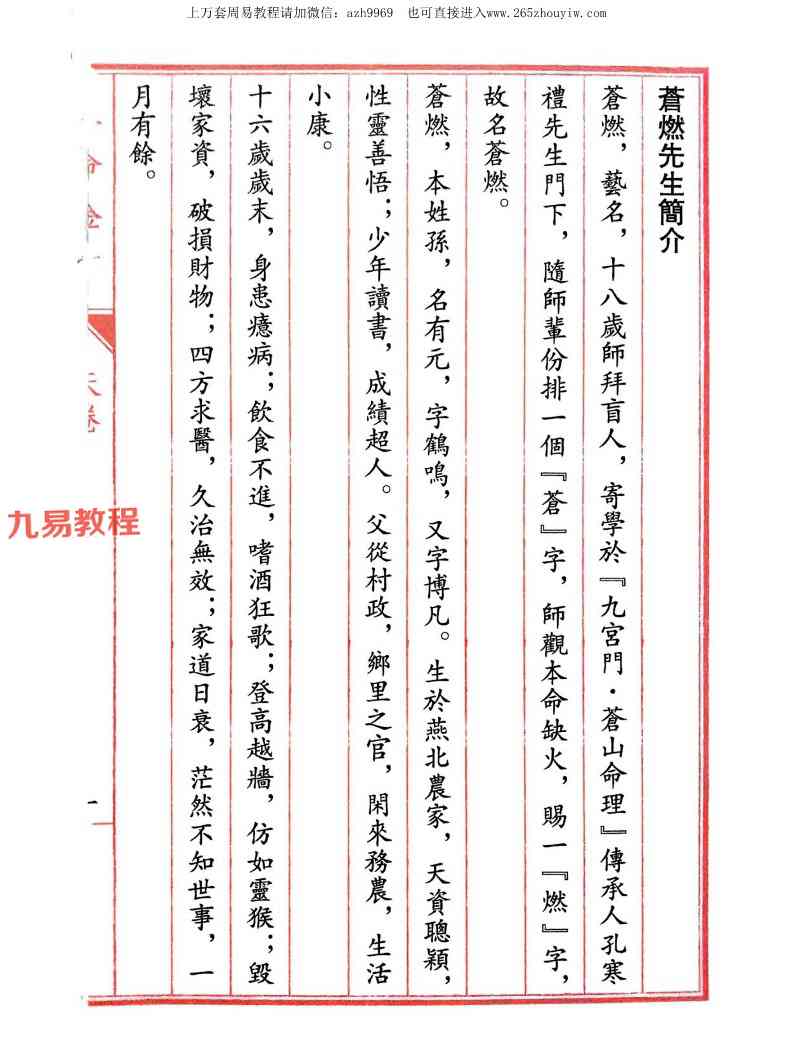 上万套周易教程请加微信：azh9969 也可直接进入www.265zhouyiw.com
蒼燃先生簡介
蒼燃，藝名，十八歲師拜盲人，寄學於『九宮門·蒼山命理』傳承人孔寒
禮先生門下，隨師輩份排一個『蒼』字，師觀本命缺火，賜一『燃』字，
故名蒼燃。
蒼燃，本姓孫，名有元，字鶴鳴，又字博凡。生於燕北農家，天資聰穎，
性靈善悟；少年讀書，成績超人。父從村政，鄉里之官，閑來務農，生活
小康。
十六歲歲末，身患癔病；飲食不進，嗜酒狂歌；登高越牆，仿如靈猴；毀
壞家資，破損財物；四方求醫，久治無效；家道日衰，茫然不知世事，一
月有餘。
天卷
一
九易教程